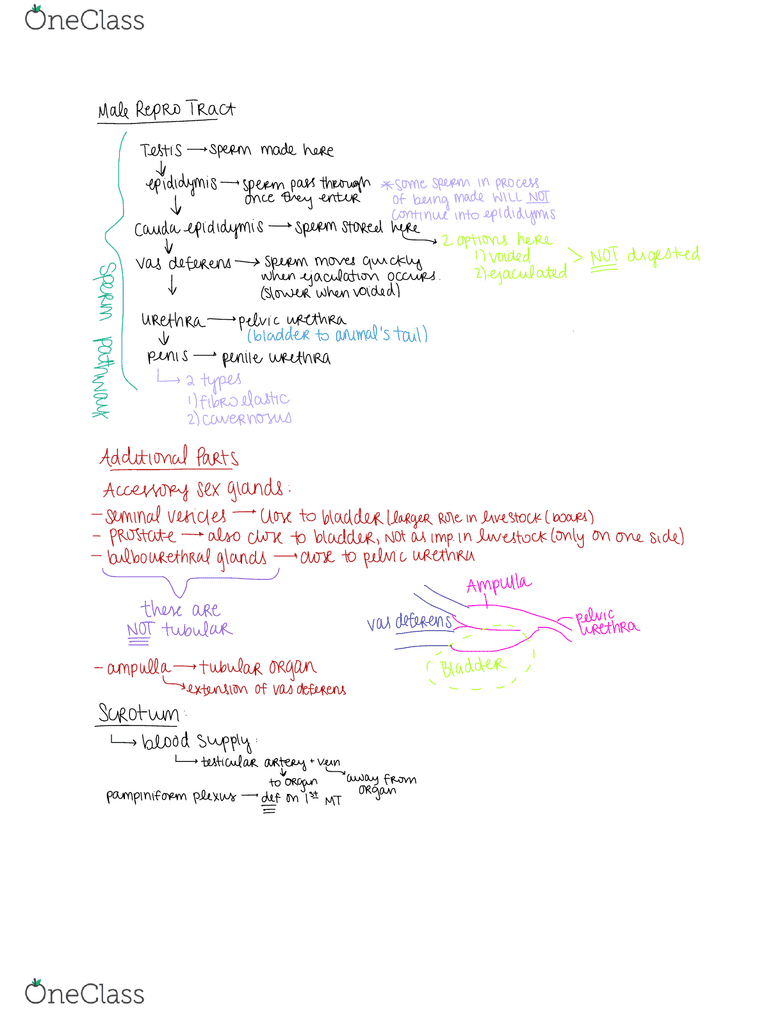 OneClass
Male Repro Tract
Sperm pathway
Testis → sperm made here
epididymis → sperm pass through
once they enter
*some sperm in process
of being made WILL NOT
continue into epididymis
Cauda epididymis → sperm stored here
→ 2 options here
1) voided
2) ejaculated
> NOT digested
vas deferens → sperm moves quickly
when ejaculation occurs.
(slower when voided)
urethra → pelvic urethra
(bladder to animal's tail)
penis → penile urethra
→ 2 types
1) fibroelastic
2) cavernosus
Additional Parts
Accessory sex glands:
- seminal vesicles → close to bladder (larger role in livestock (boars)
- prostate → also close to bladder, not as imp. in livestock (only on one side)
- bulbourethral glands → close to pelvic urethra
these are
NOT tubular
Ampulla
vas deferens
pelvic
urethra
Bladder
- ampulla → tubular organ
→ extension of vas deferens
Scrotum:
→ blood supply:
→ testicular artery + vein
to organ
away from
organ
pampiniform plexus → def on 1st MT
OneClass